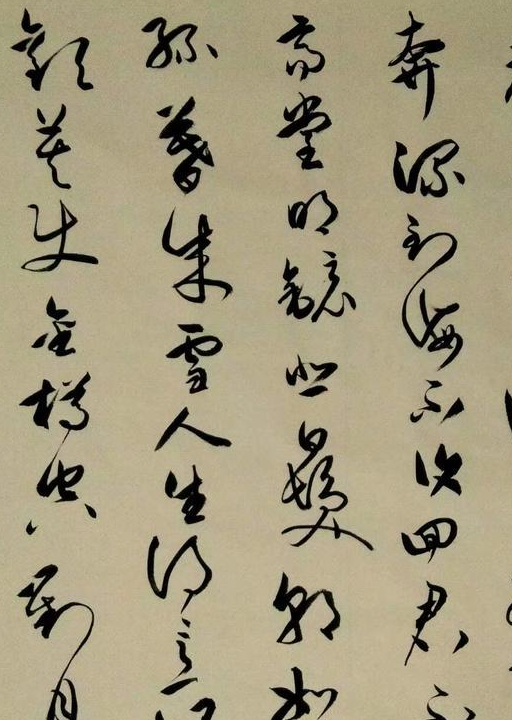 奔流到海不復回君不
高堂明鏡悲白髮朝如
絲暮成雪人生得意
歡莫使金樽空對月